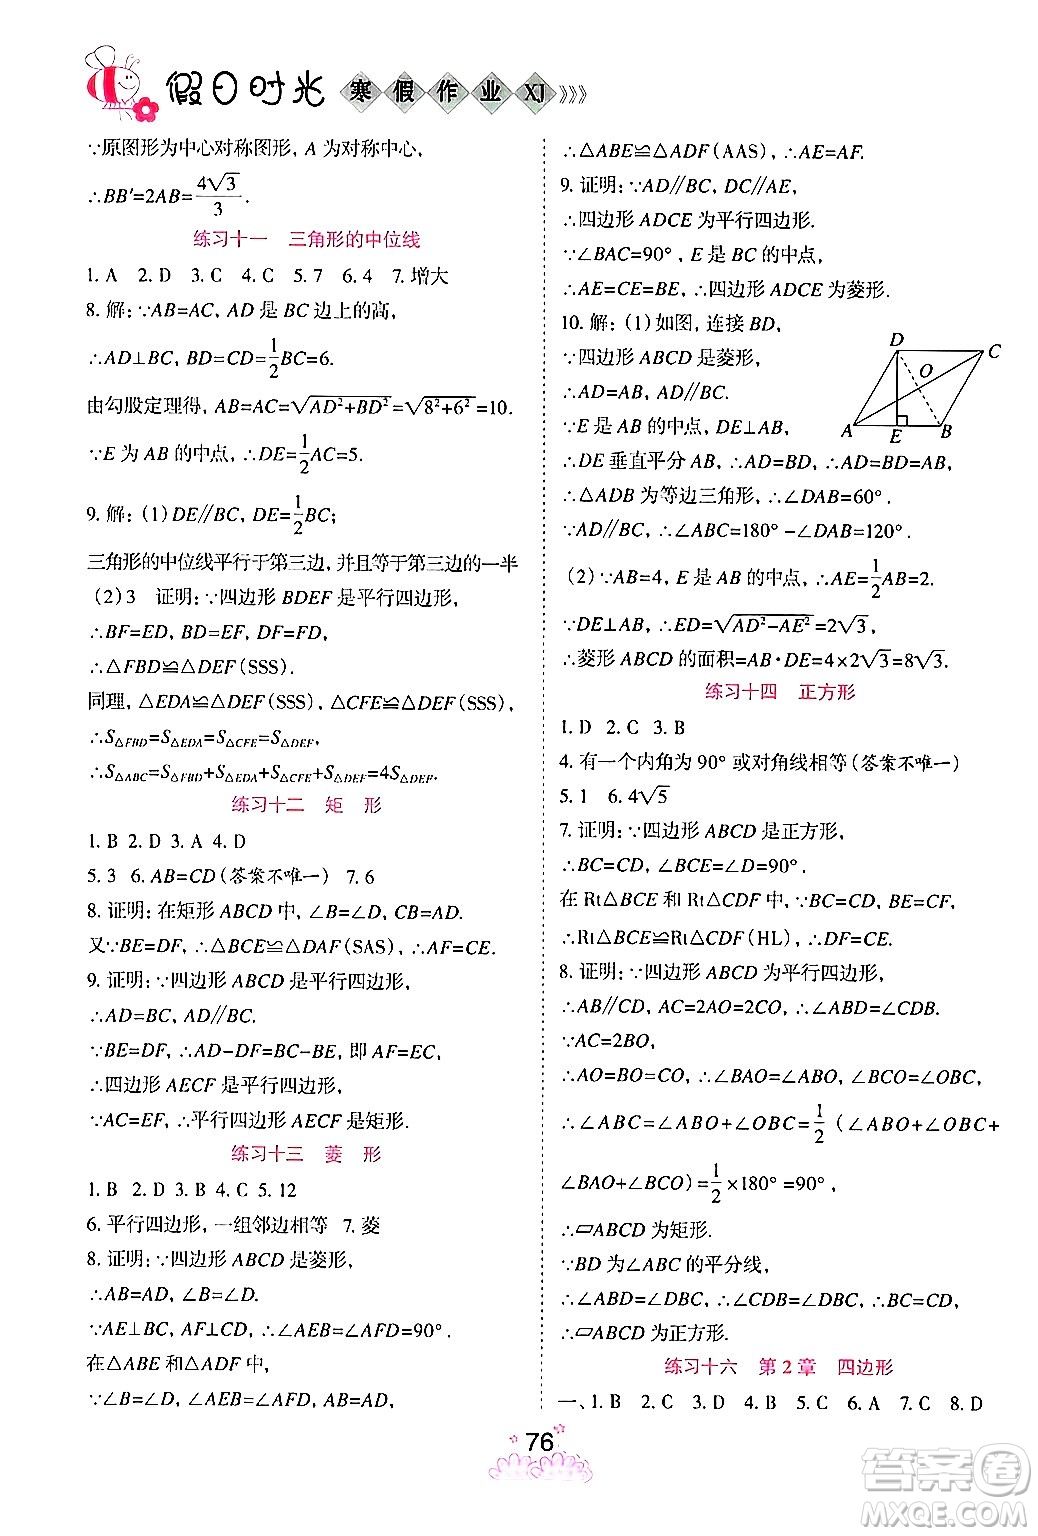 假日时光 寒假作业 XJ 》》》
∵原图形为中心对称图形, A 为对称中心,
∴BB′=2AB=4√3/3.
练习十一　三角形的中位线
1. A　2. D　3. C　4. C　5. 7　6. 4　7. 增大
8. 解:∵AB=AC, AD 是 BC 边上的高,
∴AD⊥BC, BD=CD=1/2BC=6.
由勾股定理得, AB=AC=√(AD²+BD²)=√(8²+6²)=10.
∵E 为 AB 的中点, ∴DE=1/2AC=5.
9. 解: (1)DE∥BC, DE=1/2BC;
三角形的中位线平行于第三边, 并且等于第三边的一半
(2)3　证明:∵四边形 BDEF 是平行四边形,
∴BF=ED, BD=EF, DF=FD,
∴△FBD≌△DEF(SSS).
同理, △EDA≌△DEF(SSS), △CFE≌△DEF(SSS),
∴S△FBD=S△EDA=S△CFE=S△DEF,
∴S△ABC=S△FBD+S△EDA+S△CFE+S△DEF=4S△DEF.
练习十二　矩　形
1. B　2. D　3. A　4. D
5. 3　6. AB=CD(答案不唯一)　7. 6
8. 证明: 在矩形 ABCD 中, ∠B=∠D, CB=AD.
又∵BE=DF, ∴△BCE≌△DAF(SAS), ∴AF=CE.
9. 证明:∵四边形 ABCD 是平行四边形,
∴AD=BC, AD∥BC.
∵BE=DF, ∴AD-DF=BC-BE, 即 AF=EC,
∴四边形 AECF 是平行四边形,
∵AC=EF, ∴平行四边形 AECF 是矩形.
练习十三　菱　形
1. B　2. D　3. B　4. C　5. 12
6. 平行四边形, 一组邻边相等　7. 菱
8. 证明:∵四边形 ABCD 是菱形,
∴AB=AD, ∠B=∠D.
∵AE⊥BC, AF⊥CD, ∴∠AEB=∠AFD=90°.
在△ABE 和△ADF 中,
∵∠B=∠D, ∠AEB=∠AFD, AB=AD,
∴△ABE≌△ADF(AAS), ∴AE=AF.
9. 证明:∵AD∥BC, DC∥AE,
∴四边形 ADCE 为平行四边形.
∵∠BAC=90°, E 是 BC 的中点,
∴AE=CE=BE, ∴四边形 ADCE 为菱形.
10. 解: (1)如图, 连接 BD,
∵四边形 ABCD 是菱形,
∴AD=AB, AD∥BC.
∵E 是 AB 的中点, DE⊥AB,
∴DE 垂直平分 AB, ∴AD=BD, ∴AD=BD=AB,
∴△ADB 为等边三角形, ∴∠DAB=60°.
∵AD∥BC, ∴∠ABC=180°-∠DAB=120°.
(2)∵AB=4, E 是 AB 的中点, ∴AE=1/2AB=2.
∵DE⊥AB, ∴ED=√(AD²-AE²)=2√3,
∴菱形 ABCD 的面积=AB·DE=4×2√3=8√3.
D
C
O
A
E
B
练习十四　正方形
1. D　2. C　3. B
4. 有一个内角为 90° 或对角线相等(答案不唯一)
5. 1　6. 4√5
7. 证明:∵四边形 ABCD 是正方形,
∴BC=CD, ∠B=∠D=90°.
在 Rt△BCE 和 Rt△CDF 中, BC=CD, BE=CF,
∴Rt△BCE≌Rt△CDF(HL), ∴DF=CE.
8. 证明:∵四边形 ABCD 为平行四边形,
∴AB∥CD, AC=2AO=2CO, ∴∠ABD=∠CDB.
∵AC=2BO,
∴AO=BO=CO, ∴∠BAO=∠ABO, ∠BCO=∠OBC,
∴∠ABC=∠ABO+∠OBC=1/2(∠ABO+∠OBC+
∠BAO+∠BCO)=1/2×180°=90°,
∴▱ABCD 为矩形.
∵BD 为∠ABC 的平分线,
∴∠ABD=∠DBC, ∴∠CDB=∠DBC, ∴BC=CD,
∴▱ABCD 为正方形.
练习十六　第 2 章　四边形
一、1. B　2. C　3. D　4. B　5. C　6. A　7. C　8. D
76
答案卷
MXQE.COM